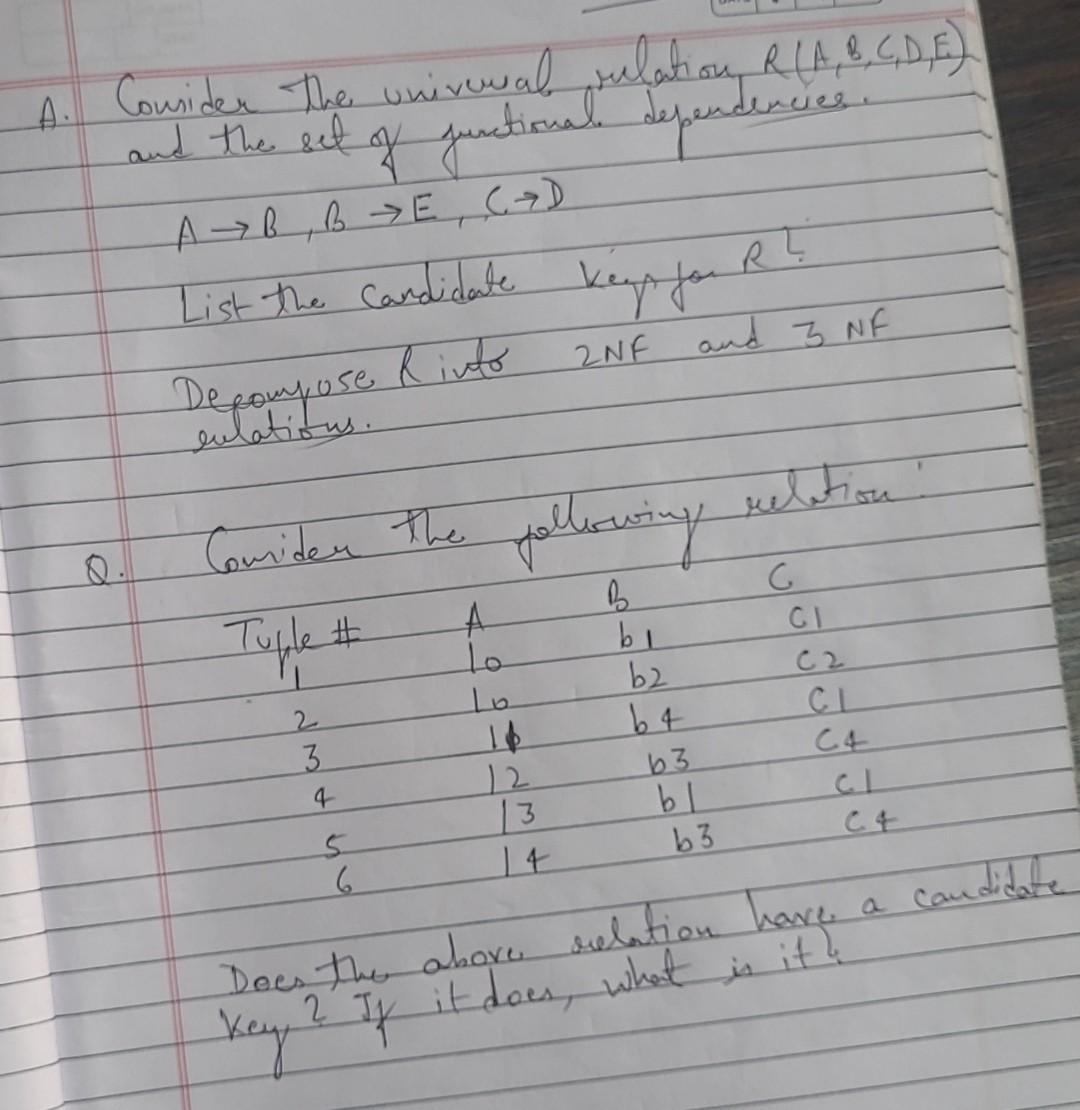 A. Consider the universal relation R(A,B,C,D,E)
and the set of functional dependencies.
A → B, B → E, C → D
List the candidate keys for R?
Decompose R into 2NF and 3 NF
relations.
Q. Consider the following relation:
Tuple # A B C
1 10 b1 C1
2 10 b2 C2
3 11 b4 C1
4 12 b3 C4
5 13 b1 C1
6 14 b3 C4
Does the above relation have a candidate
key? If it does, what is it?